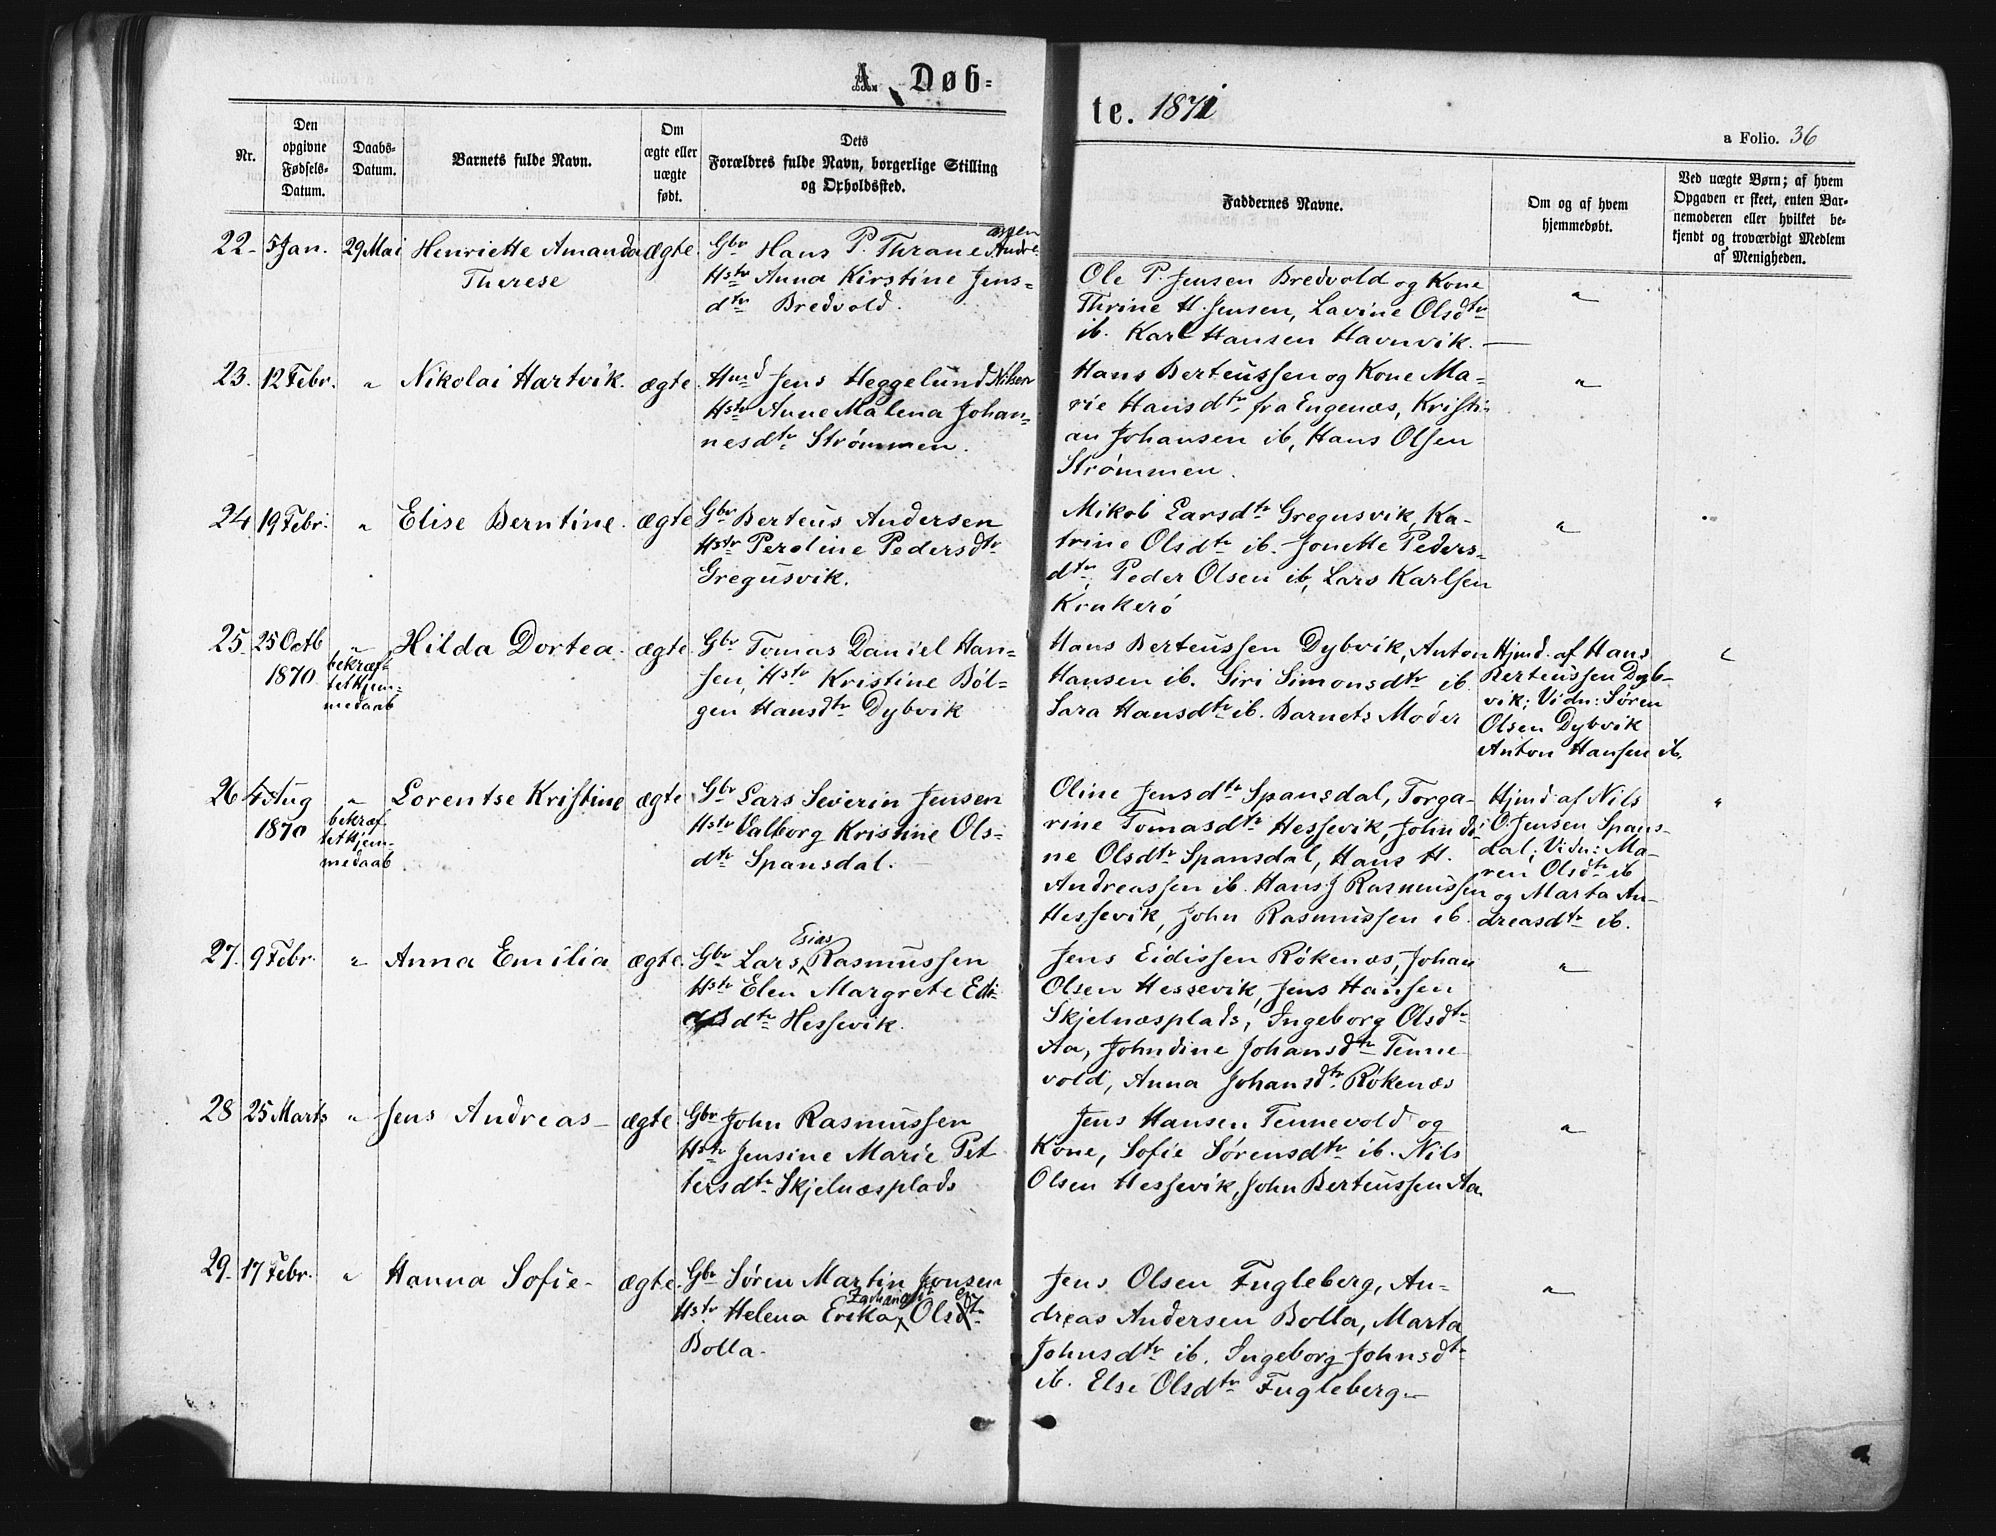 A. Døb-
te. 1871
a Folio. 36
Nr.
Den
opgivne
Fødsels-
Datum.
Daabs-
Datum.
Barnets fulde Navn.
Om
ægte eller
uægte
født.
Dets
Forældres fulde Navn, borgerlige Stilling
og Opholdssted.
Faddernes Navne.
Om og af hvem
hjemmedøbt.
Ved uægte Børn; af hvem
Opgaven er skeet, enten Bar-
nemoderen eller hvilket be-
kjendt og troværdigt Medlem
af Menigheden.
22. 5 Jan. 29 Mai Henriette Amanda
Therese
ægte.
Gbr Hans P. Thrane Andre-
assen
Hstr Anna Kirstine Jens-
dtr Bredvold.
Ole P. Jensen Bredvold og Kone
Thrine H. Jensen, Lavine Olsdtr
ib. Karl Hansen Havnvik. —
"
23. 12 Febr. " Nikolai Hartvik. ægte.
Hmd Jens Heggelund Nilsen
Hstr Anne Malena Johan-
nesdtr Strømmen.
Hans Berteussen og Kone Ma-
rie Hansdtr fra Engenæs, Kristi-
an Johansen ib, Hans Olsen
Strømmen.
"
24. 19 Febr. " Elise Berntine. ægte
Gbr Berteus Andersen
Hstr Peroline Pedersdtr
Gregusvik.
Mikol Larsdtr Gregusvik, Ka-
trine Olsdtr ib. Jonette Peders-
dtr, Peder Olsen ib, Lars Karlsen
Krakerö
"
25. 25 Octb
1870
"
bekræf-
tet Hjem-
medaab
Hilda Dortea. ægte
Gbr Tomas Daniel Han-
sen, Hstr Kristine Böl-
gen Hansdtr Dybvik
Hans Berteussen Dybvik, Anton
Hansen ib. Siri Simonsdtr ib
Sara Hansdtr ib. Barnets Moder
Hjmd. af Hans
Berteussen Dyb-
vik; Vidn: Søren
Olsen Dybvik
Anton Hansen ib.
"
26 4 Aug
1870
"
bekræf-
tet Hjem-
medaab
Lorentse Kristine ægte
Gbr Lars Severin Jensen
Hstr Valborg Kristine Ols-
dtr Spansdal.
Oline Jensdtr Spansdal, Torga-
rine Tomasdtr Hessevik, Johndi-
ne Olsdtr Spansdal, Hans H.
Andreassen ib. Hans J Rasmussen
Hessevik, John Rasmussen ib.
Hjmd. af Nils
O. Jensen Spans-
dal; Vidn: Ma-
ren Olsdtr ib
og Marta An-
dreasdtr ib.
"
27. 9 Febr. " Anna Emilia ægte.
Esias
Gbr Lars Rasmussen
Hstr Elen Margrete Edi-
dtr Hessevik.
Jens Eidissen Rökenæs, Johan
Olsen Hessevik, Jens Hansen
Skjelnæsplads, Ingeborg Olsdtr
Aa, Johndine Johansdtr Tenne-
vold, Anna Johansdtr Rökenæs
"
28 25 Marts " Jens Andreas — ægte
Gbr John Rasmussen
Hstr Jensine Marie Pet-
tersdtr Skjelnæsplads
Jens Hansen Tennevold og
Kone, Sofie Sørensdtr ib. Nils
Olsen Hessevik, John Berteussen Aa
"
29. 17 Febr. " Hanna Sofie - ægte.
Gbr Sören Martin Jonsen
Hstr Helena Erika Olsdtr
Bolla.
Jens Olsen Fugleberg, An-
dreas Andersen Bolla, Marta
Johnsdtr ib. Ingeborg Johnsdtr
ib. Else Olsdtr Fugleberg —
"